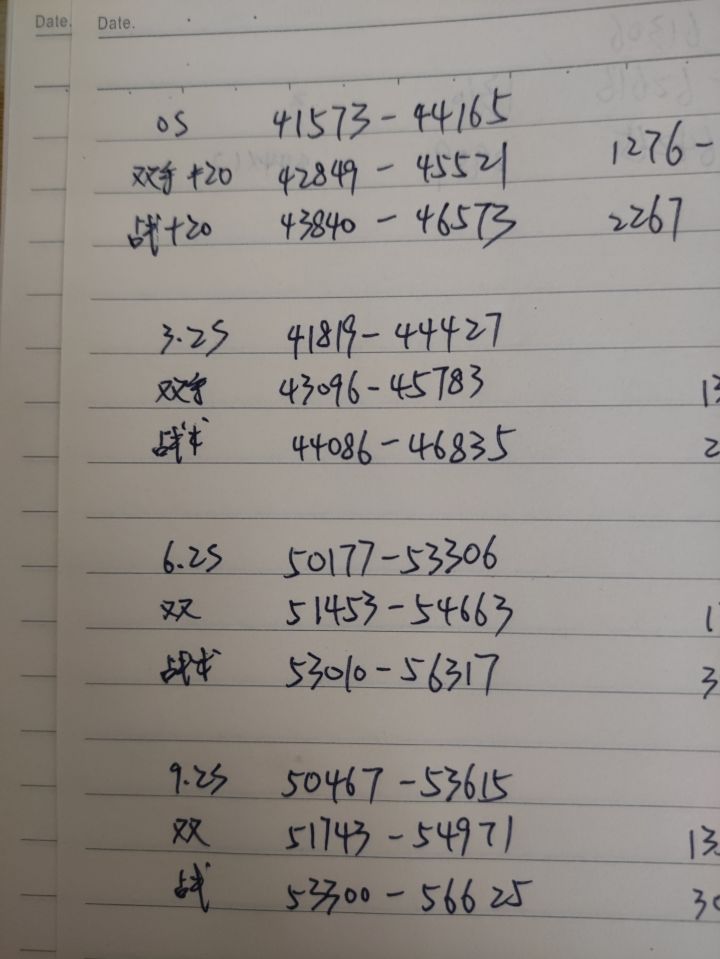 Date.
Date.
0S 41573-44165
双手+20 42849-45521 1276-
战+20 43840-46573 2267
3.2S 41819-44427
双手 43096-45783 13
战术 44086-46835 2
6.2S 50177-53306
双 51453-54663 1
战术 53010-56317 3
9.2S 50467-53615
双 51743-54971 13
战 53300-56625 30